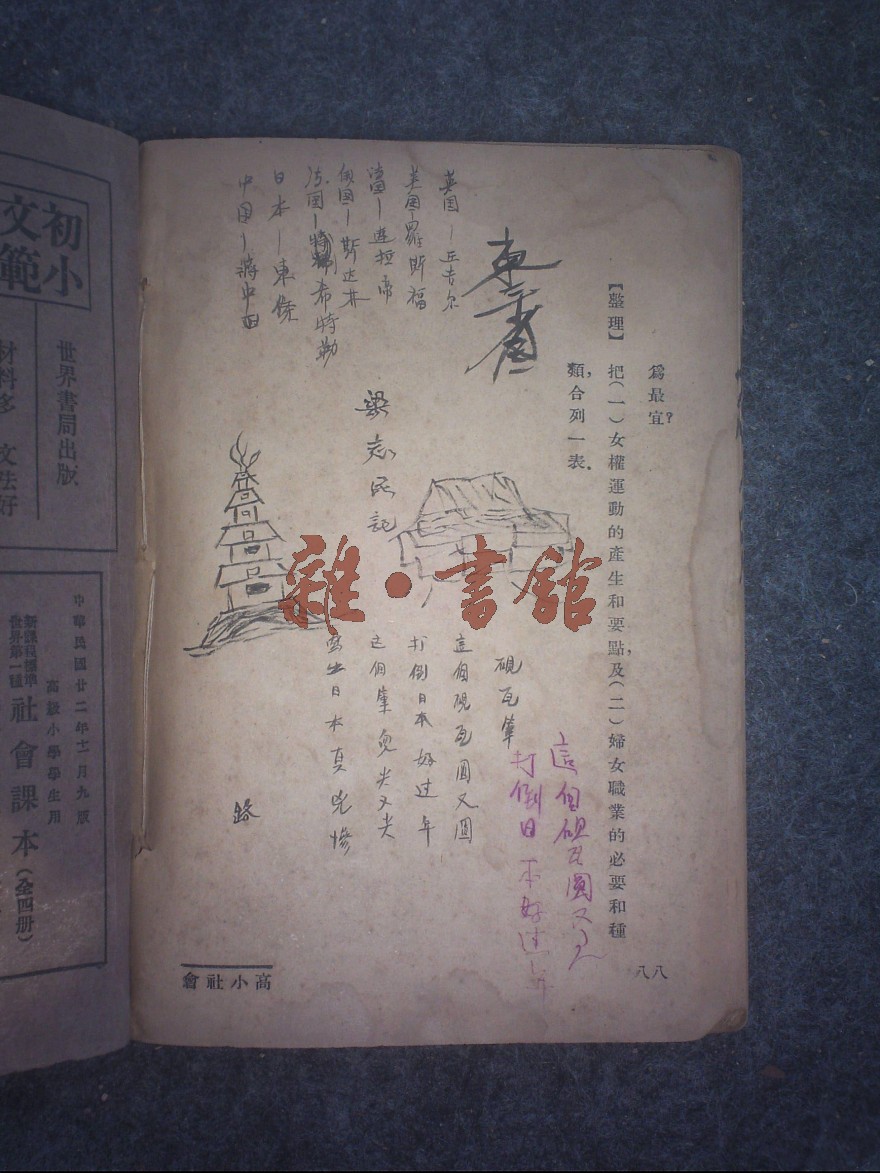 爲最宜？
【整理】 把（一）女權運動的產生和要點，及（二）婦女職業的必要和種
類，合列一表．
八八
高小社會
英国－丘吉尔
美国－羅斯福
俄国－斯达林
希特勒
日本－東條
中国－蔣中正
梁志民記
硯瓦筆
這個硯瓦圓又圓
打倒日本好过年
这個筆兒尖又尖
寫出日本真兇惨
路
這個硯瓦圓又
打倒日本好过年
雜·書館
初小
文範
世界書局出版
材料多 文法好
中華民國廿二年十二月九版
高級小學學生用
新課程標準
世界第一種
社會課本（全四册）